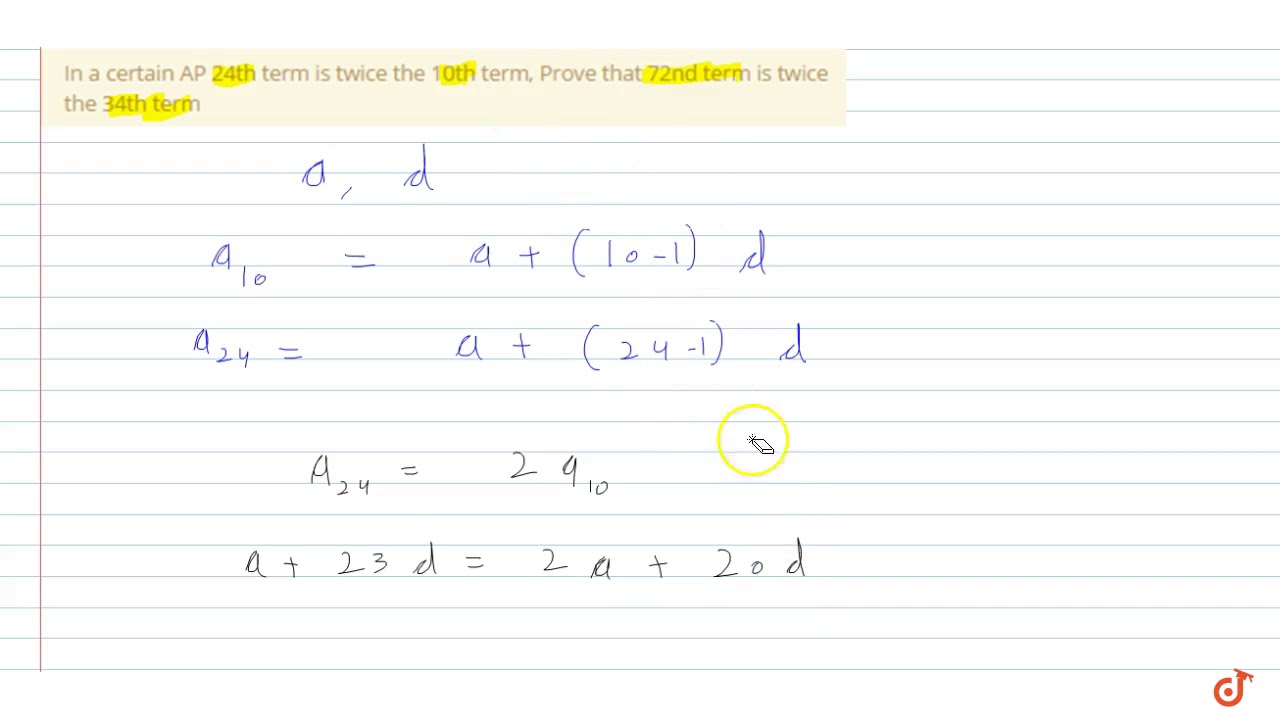 In a certain AP 24th term is twice the 10th term, Prove that 72nd term is twice
the 34th term
a, d
a₁₀ = a + (10-1) d
a₂₄ = a + (24-1) d
A₂₄ = 2 a₁₀
a + 23 d = 2 a + 20 d